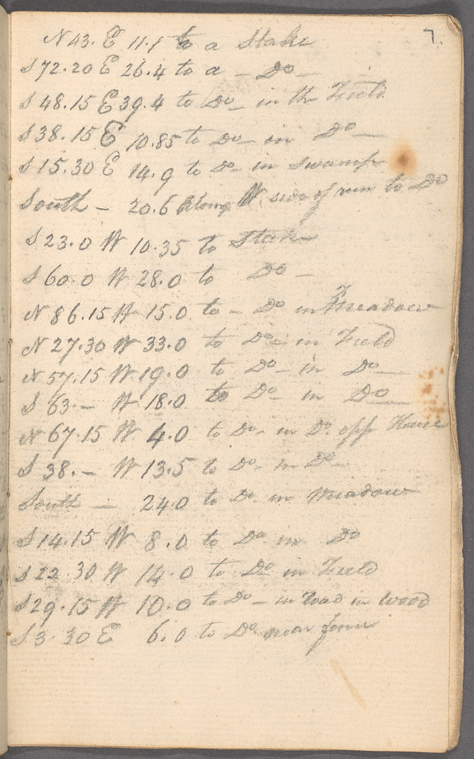 7.
N 43. E 11.1 to a Stake
S 72.20 E 26.4 to a - Do -
S 48.15 E 39.4 to Do - in the Field
S 38.15 E 10.85 to Do - in Do -
S 15.30 E 14.9 to Do - in Swamp
South - 20.6 Along W. side of run to Do
S 23.0 W 10.35 to Stake
S 60.0 W 28.0 to Do -
N 86.15 W 15.0 to - Do in Meadow
N 27.30 W 33.0 to Do - in Field
N 57.15 W 19.0 to Do - in Do -
S 63 - W 18.0 to Do - in Do
N 67.15 W 4.0 to Do - in Do. opp House
S 38. - W 13.5 to Do - in Do -
South - 24.0 to Do - in Meadow
S 14.15 W 8.0 to Do in Do
S 22.30 W 14.0 to Do in Field
S 29.15 W 10.0 to Do - in road in Wood
S 3.30 E 6.0 to Do near fence